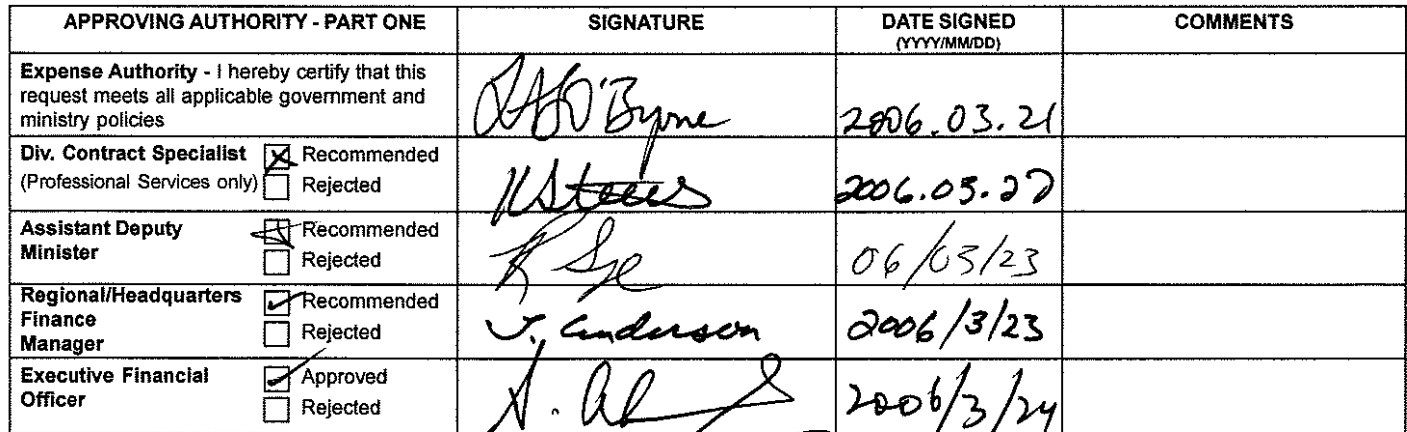 APPROVING AUTHORITY - PART ONE
SIGNATURE
DATE SIGNED
(YYYY/MM/DD)
COMMENTS
Expense Authority - I hereby certify that this
request meets all applicable government and
ministry policies
O'Byrne
2006.03.21
Div. Contract Specialist
Recommended
(Professional Services only)
Rejected
2006.03.22
Assistant Deputy
Minister
Recommended
Rejected
06/03/23
Regional/Headquarters
Finance
Manager
Recommended
Rejected
J. Anderson
2006/3/23
Executive Financial
Officer
Approved
Rejected
2006/3/24